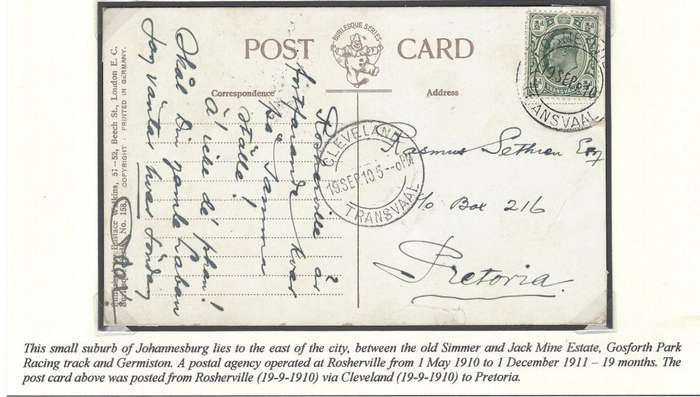 BURLESQUE SERIES
POST CARD
Correspondence
Address
TRANSVAAL
19 SEP 10
CLEVELAND
19 SEP 10 5
TRANSVAAL
Rasmus Sethren Esq
c/o Box 216
Pretoria.
Rosherville är
fortfarande kvar
på samma
ställe!
Skål Din gamla
Jag väntar hvar Söndag
57–52, Beech St., London E. C.
COPYRIGHT. PRINTED IN GERMANY.
No. 158
This small suburb of Johannesburg lies to the east of the city, between the old Simmer and Jack Mine Estate, Gosforth Park
Racing track and Germiston. A postal agency operated at Rosherville from 1 May 1910 to 1 December 1911 – 19 months. The
post card above was posted from Rosherville (19-9-1910) via Cleveland (19-9-1910) to Pretoria.